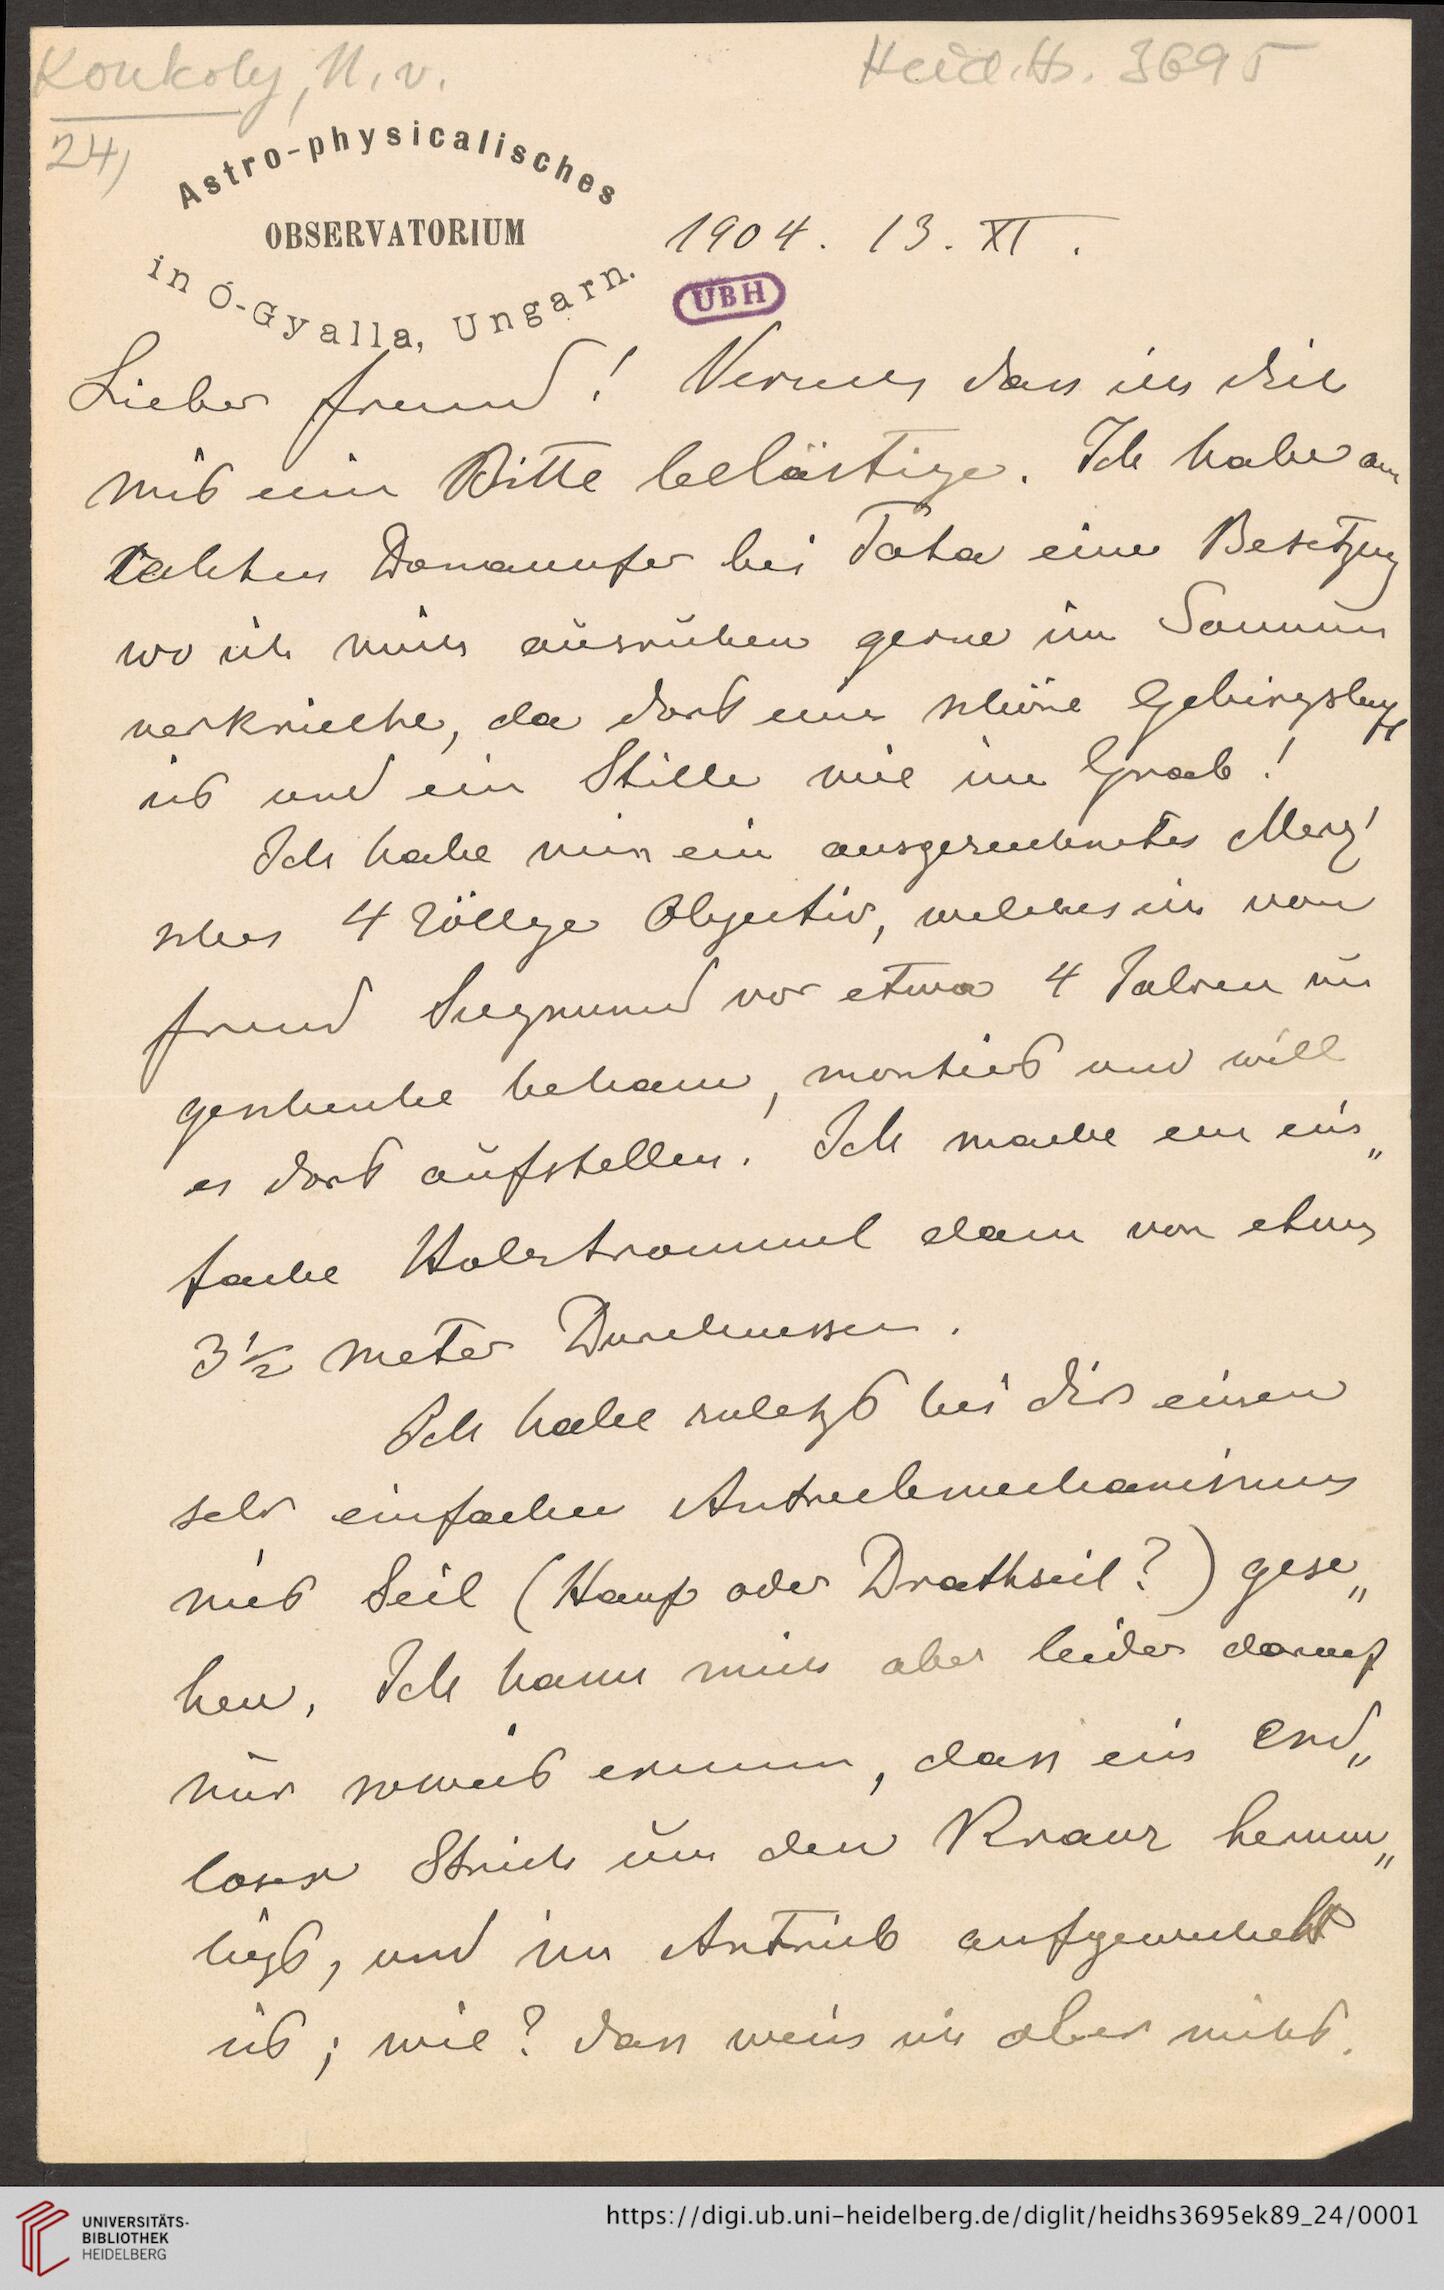 Konkoly, N. v.
Heid. Hs. 3695
24)
Astro-physicalisches
OBSERVATORIUM
in Ó-Gyalla, Ungarn.
1904. 13. XI.
UBH
Lieber Freund! Verzeih dass ich dich
mit ein Bitte belästige. Ich habe am
rechten Donauufer bei Tata eine Besetzung
wo ich mich ausruhen gerne im Sommer
verkrieche, da dort eine schöne Gebirgsluft
ist und ein Stille wie im Grab!
Ich habe mir ein ausgezeichnetes Merz'
sches 4 zöllige Objectiv, welches ich von
Freund Siegmund vor etwa 4 Jahren im
geschenke bekam, montiert und will
es dort aufstellen. Ich mache ein ein„
fache Holztrommel dann von etwa
3½ meter Durchmesser.
Ich habe zuletzt bei dir einen
sehr einfachen Antriebmechanismus
mit Seil (Hanf oder Drathseil?) gese„
hen. Ich kann mich aber leider darauf
nur soweit erinnern, dass ein End„
loser Strick um den Kranz herum„
liegt, und im Antrieb aufgewickelt
ist; wie? dass weis ich aber nicht.
UNIVERSITÄTS-
BIBLIOTHEK
HEIDELBERG
https://digi.ub.uni-heidelberg.de/diglit/heidhs3695ek89_24/0001